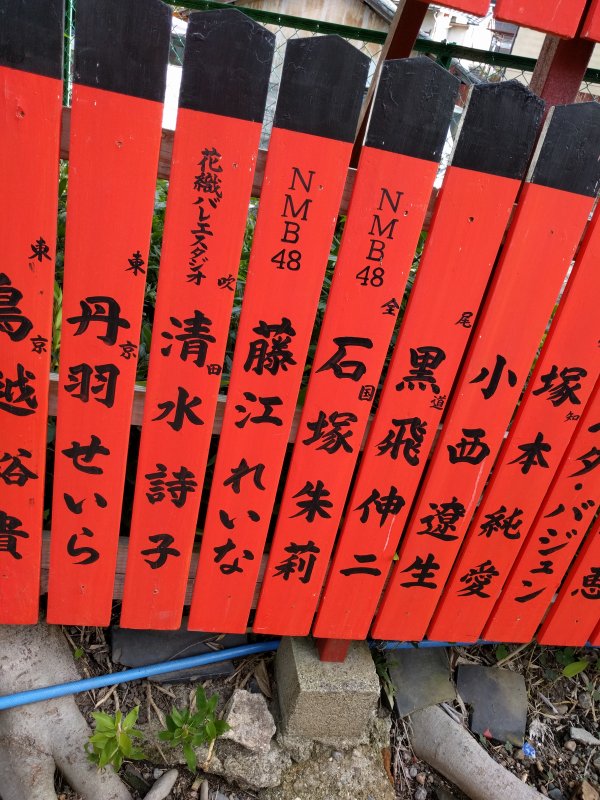 東京
鳥越裕貴
東京
丹羽せいら
花織バレエスタジオ
吹田
清水詩子
NMB48
藤江れいな
NMB48
全国
石塚朱莉
尾道
黒飛伸二
小西遼生
知
塚本純愛
ダ・バジュン
恵